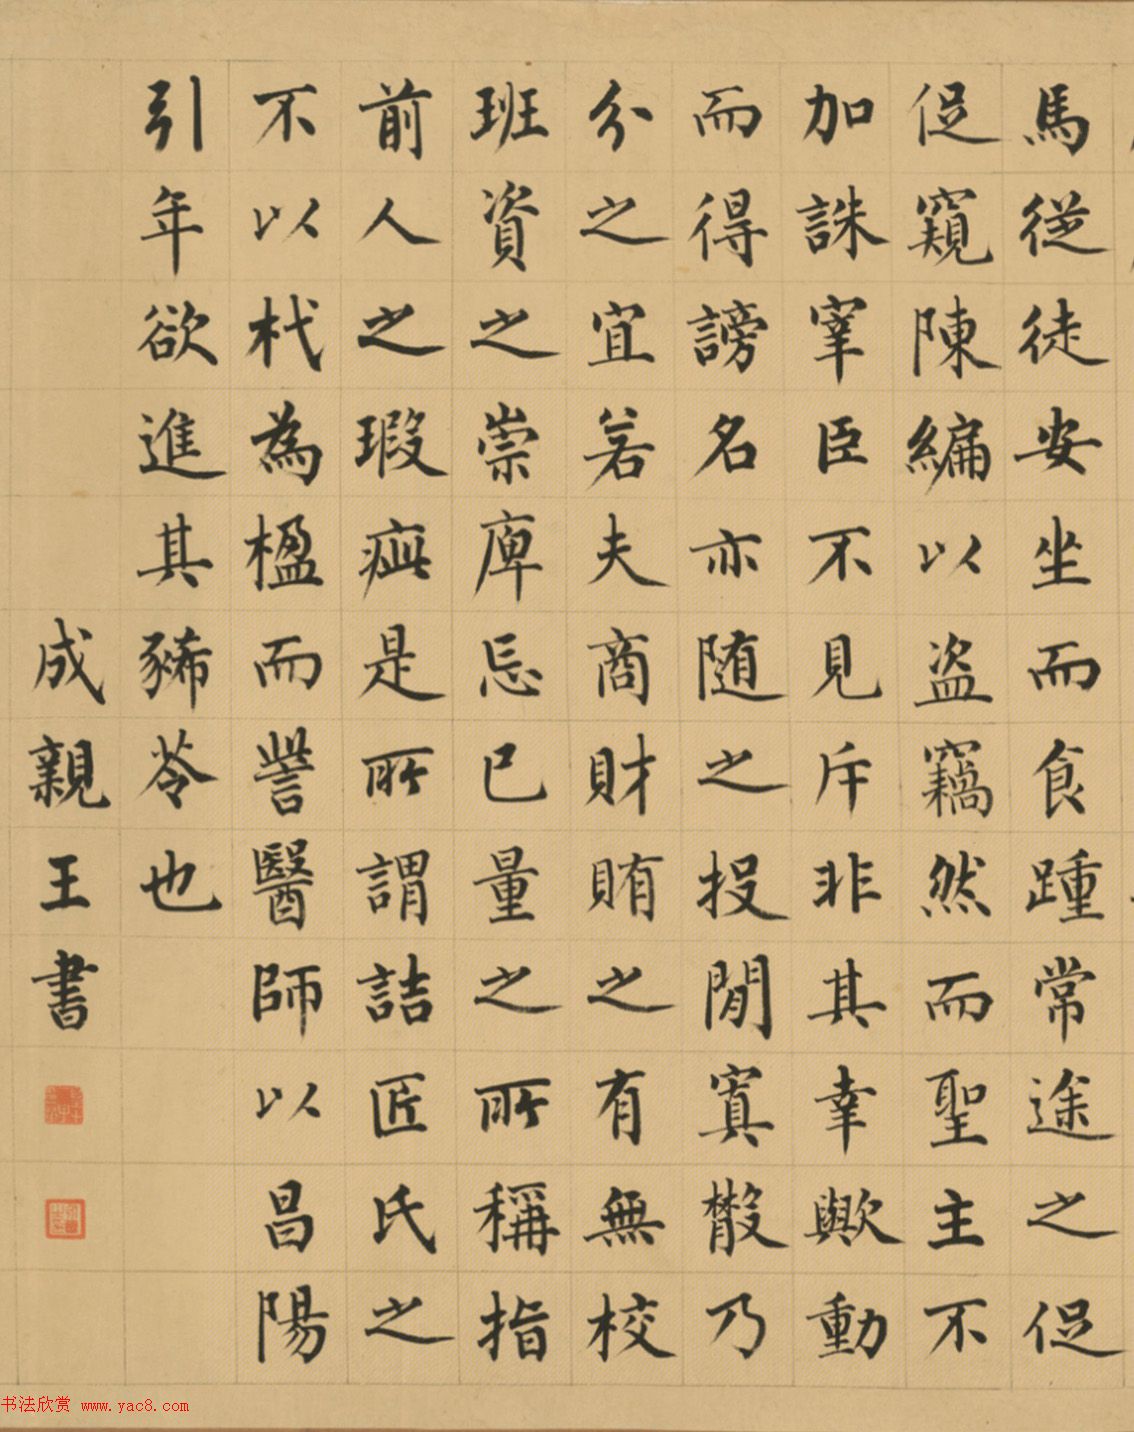 馬從徒安坐而食踵常途之促
促窺陳編以盜竊然而聖主不
加誅宰臣不見斥非其幸歟動
而得謗名亦随之投閒寘散乃
分之宜若夫商財賄之有無校
班資之崇庳忘已量之所稱指
前人之瑕疵是所謂詰匠氏之
不以杙為楹而訾醫師以昌陽
引年欲進其豨苓也
成親王書
书法欣赏 www.yac8.com